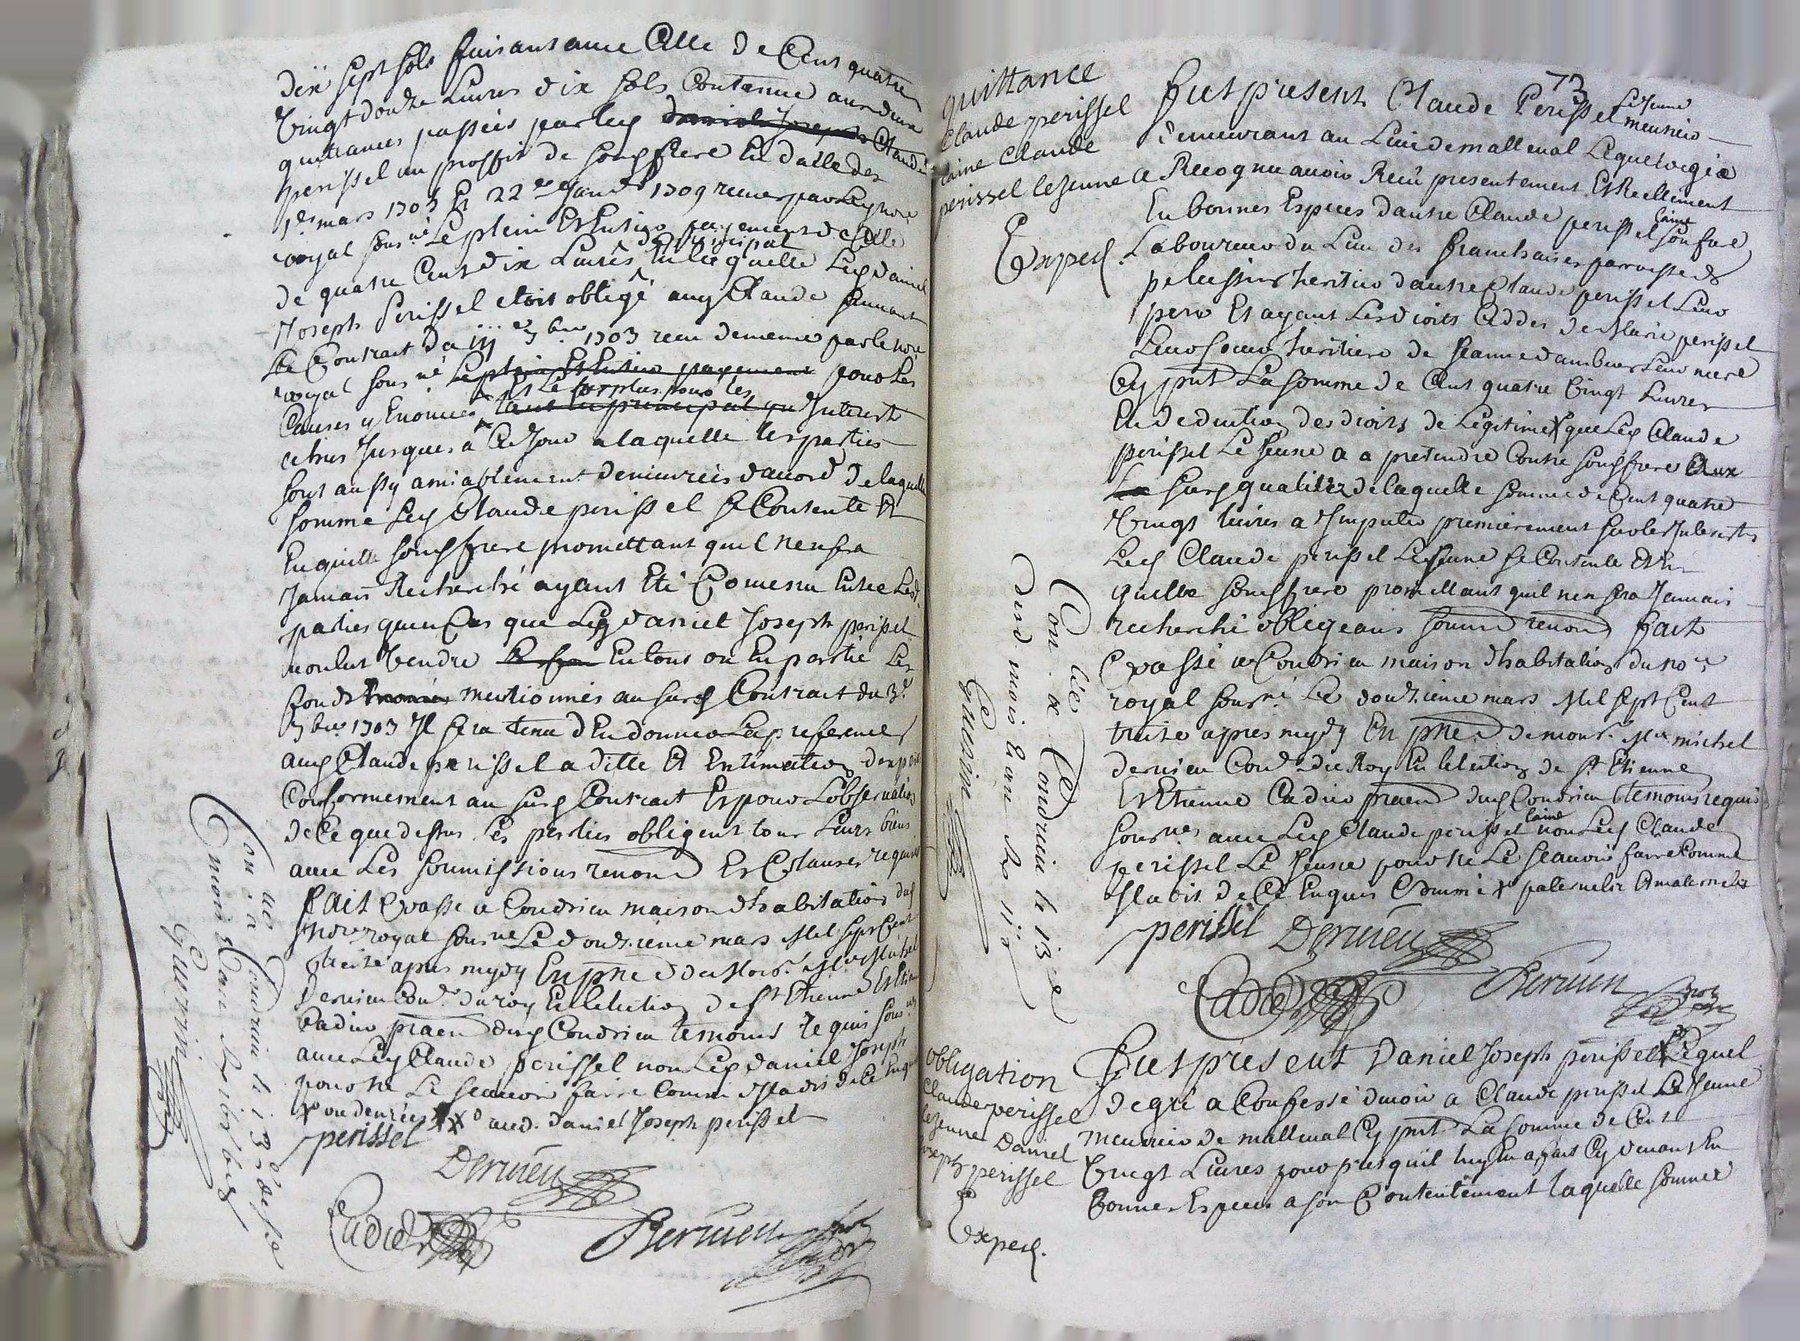 dix sept sols faisant avec Celle de Cent quatre
Vingt douze Livres dix sols Contenue aux deux
quittances passées par led daniel Joseph Claude
perissel au proffit de son frere En datte des
1er mars 1703 Et 22e 1709 receue par Led no.re
royal sous.né Le plein Et Entier payement de Celle
de principal
de quatre Cent dix Livres En laquelle Led daniel
Joseph Perissel etoit obligé aud Claude suivant
Le Contrat du iii 9bre 1703 receu de meme par le no.re
royal sous.né Le plein Et Entier payement pour Les
Et Le surplus pour les
Causes y Enoncées tant en principal que Interest
echus Jusques a Ce Jour a laquelle les parties
sont aussy amiablement demeurées d'acord de laquelle
somme Led Claude perissel se Contente Et
En quitte son frere promettant quil n'en sera
Jamais Recherché ayant Eté Convenu Entre Lesd.
parties qu'en Cas que Led daniel Joseph perissel
voulut Vendre En tout ou En partie Les
fonds mentionnés au susd Contrat du 3e
9bre 1703 Il sera tenu d'En donner La preference
aud Claude perissel a ditte Et Estimation
Conformement au susd Contrat Et pour L'observation
de Ce que dessus Les parties obligent tous Leurs biens
avec Les soumissions renon. Et Clauses requises
Fait Et passé a Condrieu maison d'habitation dud
no.re royal sous.né Le douzieme mars Mil sept Cent
treize apres midy En pnce de Mons.r M.re Michel
Dervieu Con.r du roy En L'election de St Etienne Et Etienne
Cadier praen dud Condrieu temoins requis sous.nes
avec Led Claude perissel non Led daniel Joseph
pour ne Le scavoir faire Comme Il a dit de Ce Enquis
x ou denrées x aud. daniel Joseph perissel
perissel
Dervieu
Cadier
Dervieu
Con lé a Condrieu le 13e de sd
mois
Guerin
73
quittance
Claude perissel
laine Claude
perissel leJeune
Exped
Fut present Claude Perissel Le Jeune meunier
demeurant au Lieu de malleval Lequel de gré
a Recognu avoir Receu presentement Et Reellement
En bonnes Especes d'autre Claude perissel laine son frere
Laboureur du Lieu des franchaises parroisse de
pelussins heritier d'autre Claude perissel Leur
pere Et ayant Les droits Cedés de Marie perissel
Leur soeur heritiere de Jeanne Leur mere
Cy pnt La somme de Cent quatre Vingt Livres
En deduction des droits de Legitime x que Led Claude
perissel Le Jeune a a pretendre Contre son frere Aux
susd qualitez de laquelle somme de Cent quatre
Vingt livres a Imputer premierement sur les Interests
Led Claude perissel Le Jeune se Contente Et En
quitte son frere promettant quil n'en sera Jamais
recherché obligeans soumis renon Fait
Et passé a Condrieu maison d'habitation du no.re
royal sous.né Le douzieme mars Mil Sept Cent
treize apres midy En pnce de mons.r M.re michel
dervieu Con.r du Roy En L'election de St Etienne
Et Etienne Cadier praen dud Condrieu temoins requis
sous.nes avec Led Claude perissel laine non Led Claude
perissel Le Jeune pour ne Le scavoir faire Comme
Il a dit de Ce Enquis x paternelle Et maternelle
perissel
Dervieu
Cadier
Dervieu
Con lé a Condrieu le 13e
dud. mois
Guerin
obligation
Claude perissel
leJeune Daniel
Joseph perissel
Exped.
Fut present Daniel Joseph perissel Lequel
de gré a Confessé devoir a Claude perissel Le Jeune
meunier de malleval Cy pnt La somme de Cent
Vingt Livres pour prest quil luy En a fait Cy devant En
bonnes Especes a son Contentement laquelle somme